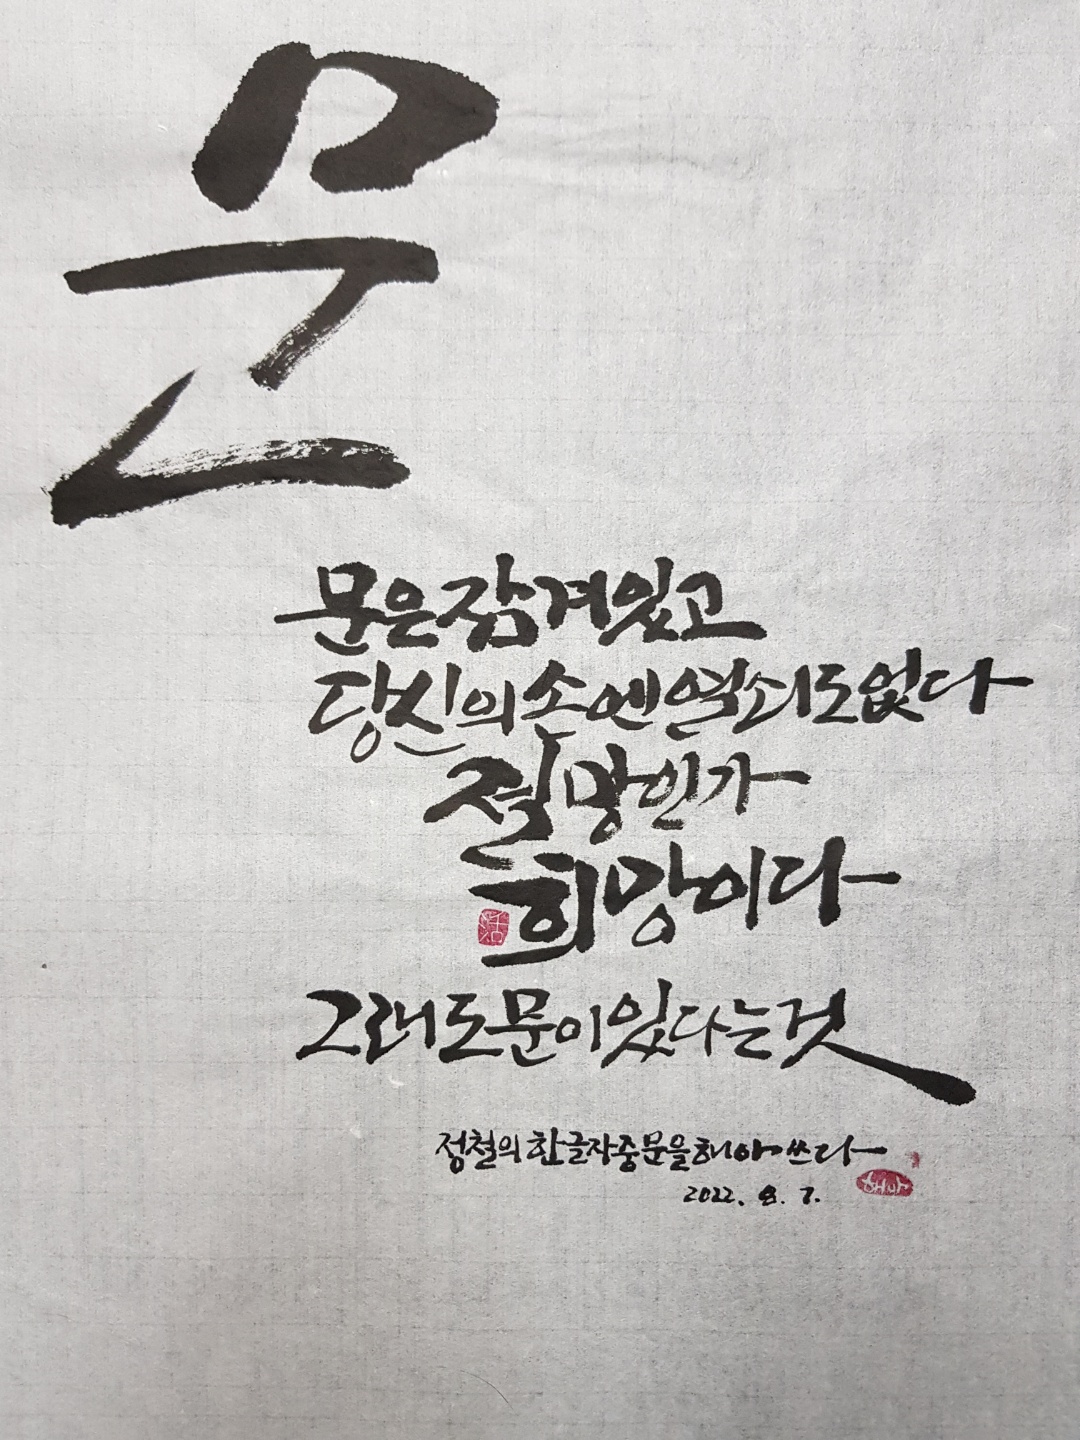 문
문은 잠겨있고
당신의 손엔 열쇠도 없다
절망인가
희망이다
그래도 문이 있다는 것
정철의 한글자 중 문을 해아 쓰다
2022. 8. 7.
해아